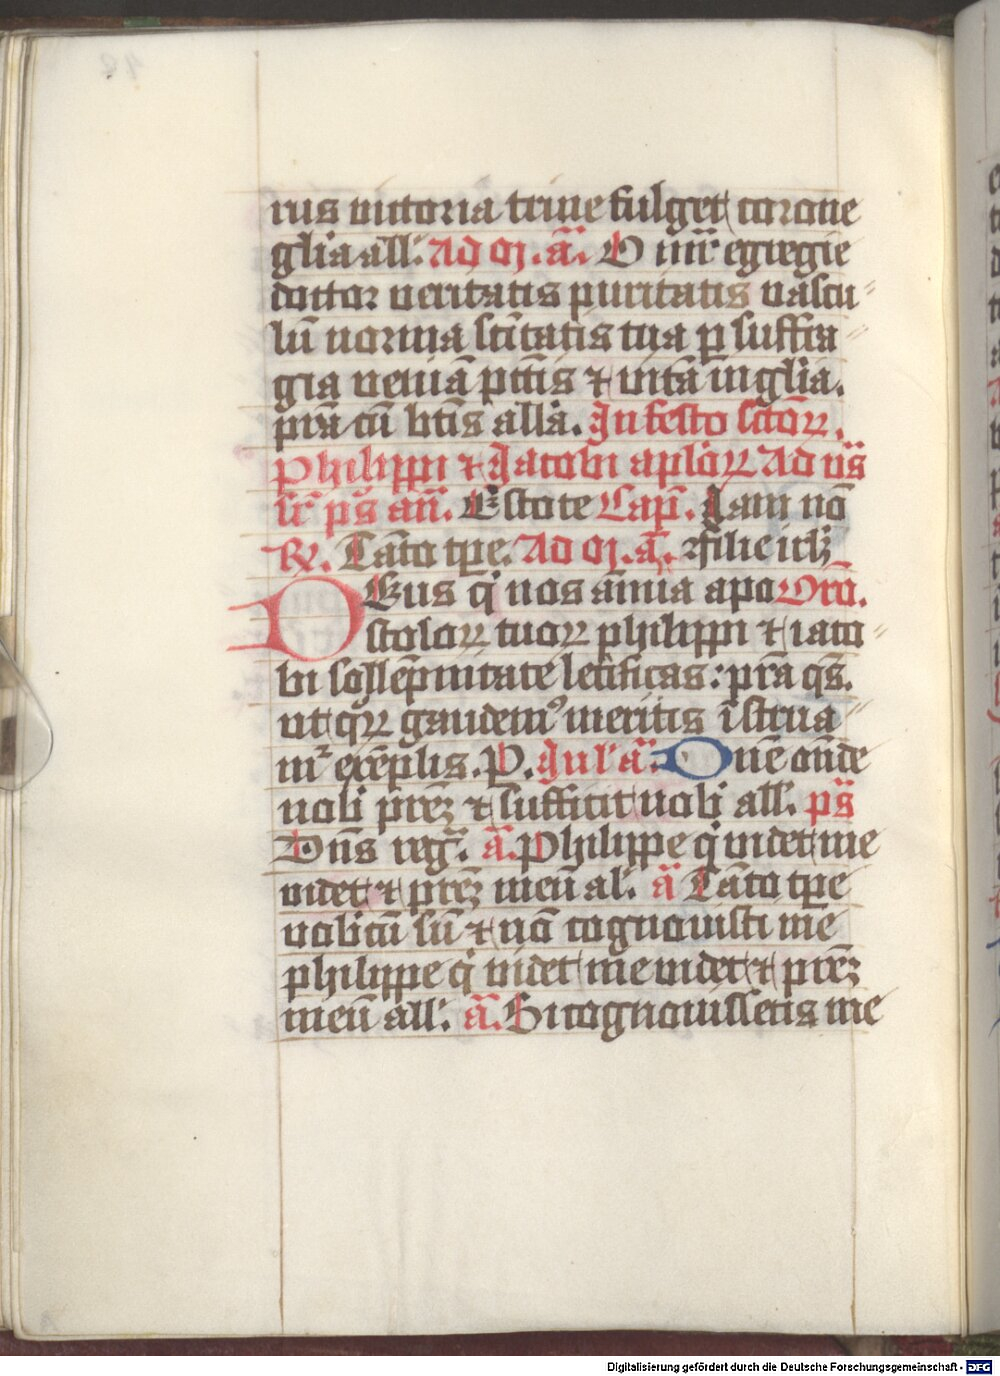 rus victoria trine fulget corone
gl̄ia all'. Ad m̄. a᷑. O mr̄ egregie
doctor veritatis puritatis vascu⸗
lū norma sc̄itatis tua ꝑ suffra⸗
gia veniā pctīs ⁊ vitā in glīa.
prā cū btīs alla. In festo sctōꝝ.
Philippi ⁊ Jacobi aplōꝝ Ad vs̄
ꝑs an̄. Estote Cap̄. Iam nō
R̄. Tāto tp̄e. Ad m̄. ā. filie irlm̄
DEus q' nos ānua apo Orō.
stoloꝝ tuoꝝ philippi ⁊ iaco⸗
bi sollēpnitate letificas: prā qs̄.
ut qꝝ gaudem᷒ meritis īstrua⸗
mr̄ exēplis. P. Inl' ā. Dn̄e on̄de
nob' prēꝫ ⁊ sufficit nob' all'. ps̄
Dn̄s reḡ. ā. Philippe q' videt me
videt ⁊ prēꝫ meū al'. ā Tāto tp̄e
vobcū sū ⁊ nō cognouisti me
philippe q' videt me videt ⁊ prēꝫ
meū all'. ā. Si cognouissetis me
Digitalisierung gefördert durch die Deutsche Forschungsgemeinschaft - DFG